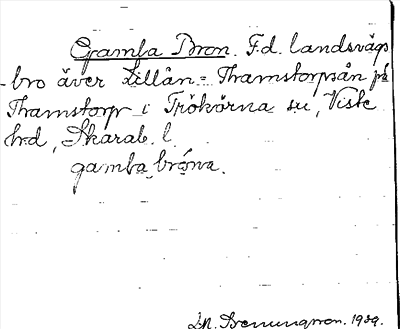 Gamla Bron. F.d. landsvägs
bro över Lillån = Thamstorpsån på
Thamstorp i Friökärna su, Viste
hrd, Skarab. l.
gamba bróna.
1939.